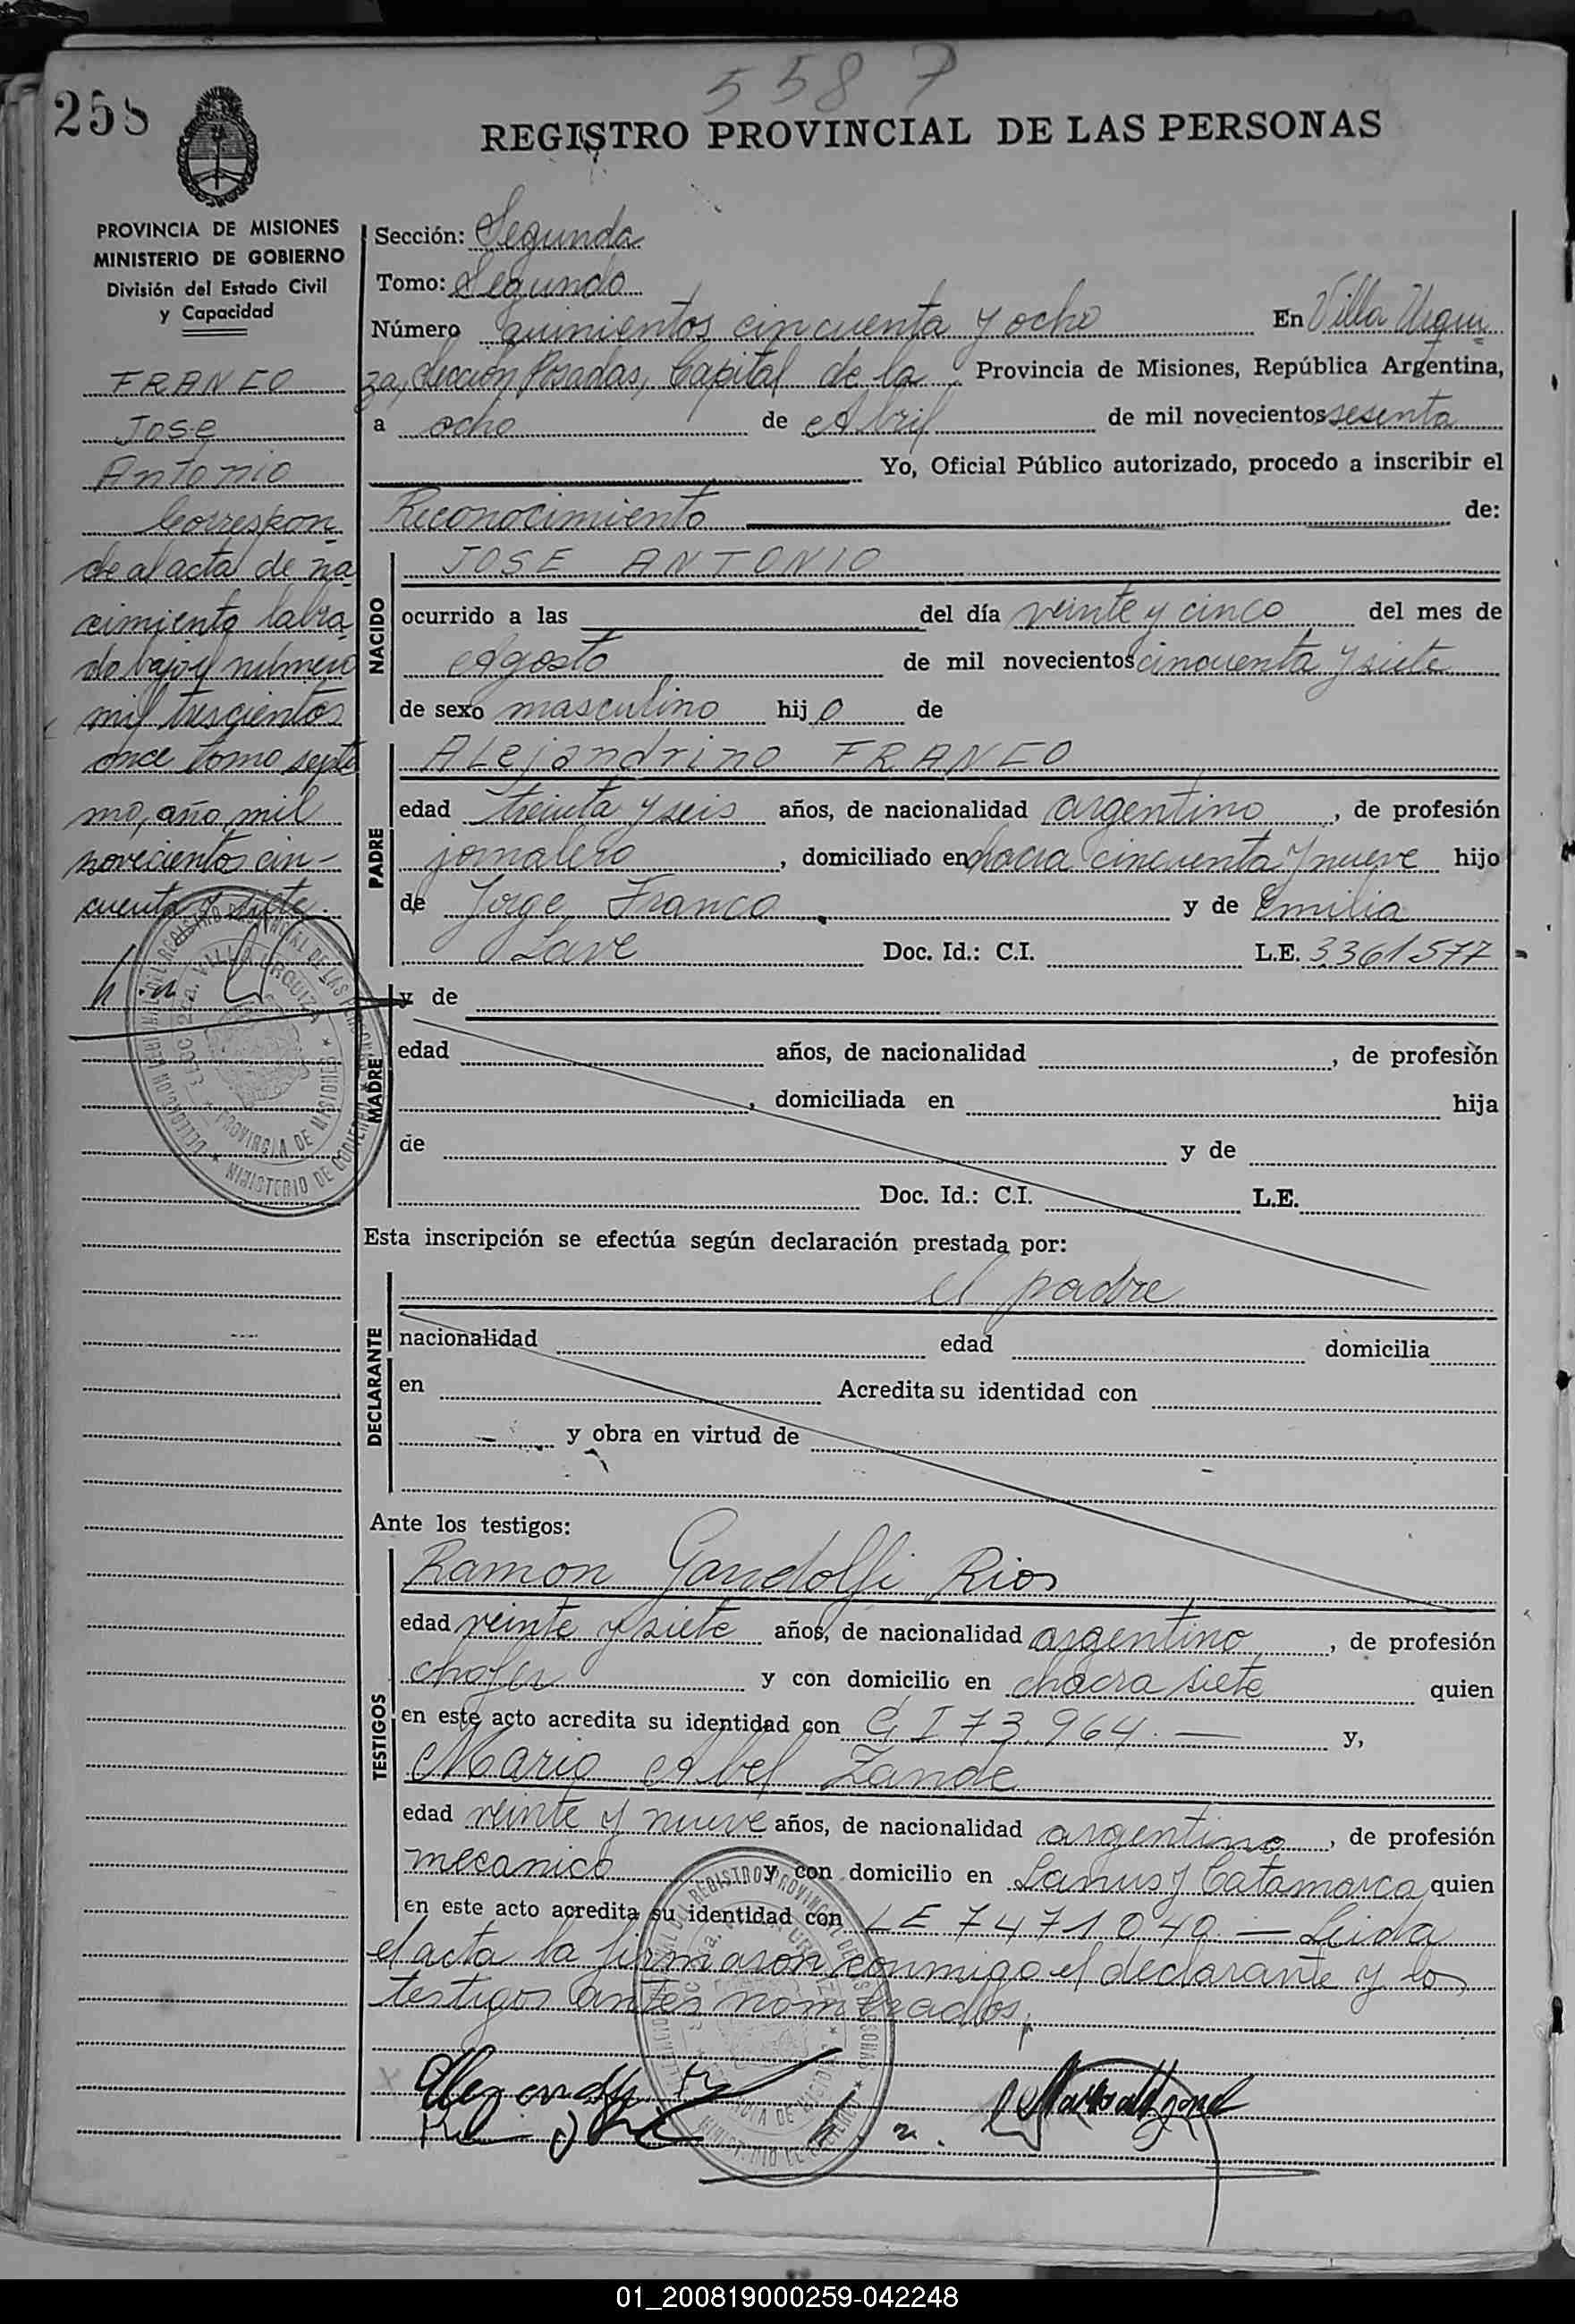 558 7
258
REGISTRO PROVINCIAL DE LAS PERSONAS
PROVINCIA DE MISIONES
MINISTERIO DE GOBIERNO
División del Estado Civil
y Capacidad
FRANCO
Jose
Antonio
Correspon
de al acta de na
cimiento labra
do bajo el número
mil trescientos
once tomo septi
mo, año mil
novecientos cin-
cuenta y siete.
Sección: Segunda
Tomo: Segundo
Número quinientos cincuenta y ocho En Villa Urqui
za, Sección Posadas, Capital de la Provincia de Misiones, República Argentina,
a ocho de Abril de mil novecientos sesenta
Yo, Oficial Público autorizado, procedo a inscribir el
Reconocimiento de:
NACIDO
JOSE ANTONIO
ocurrido a las del día veinte y cinco del mes de
Agosto de mil novecientos cincuenta y siete
de sexo masculino hijo de
PADRE
Alejandrino FRANCO
edad treinta y seis años, de nacionalidad argentino, de profesión
jornalero, domiciliado en chacra cincuenta y nueve hijo
de Jorge Franco y de Emilia
Lave Doc. Id.: C.I. L.E. 3361577
MADRE
y de
edad años, de nacionalidad , de profesión
, domiciliada en hija
de y de
Doc. Id.: C.I. L.E.
Esta inscripción se efectúa según declaración prestada por:
DECLARANTE
el padre
nacionalidad edad domicilia
en Acredita su identidad con
y obra en virtud de
Ante los testigos:
TESTIGOS
Ramon Gandolfi Rios
edad veinte y siete años, de nacionalidad argentino, de profesión
chofer y con domicilio en chacra siete quien
en este acto acredita su identidad con C I 73.964.— y,
Mario Abel Zande
edad veinte y nueve años, de nacionalidad argentino, de profesión
mecanico y con domicilio en Lanus y Catamarca quien
en este acto acredita su identidad con LE 7471.040.— Leida
el acta la firmaron conmigo el declarante y los
testigos antes nombrados.
01_200819000259-042248